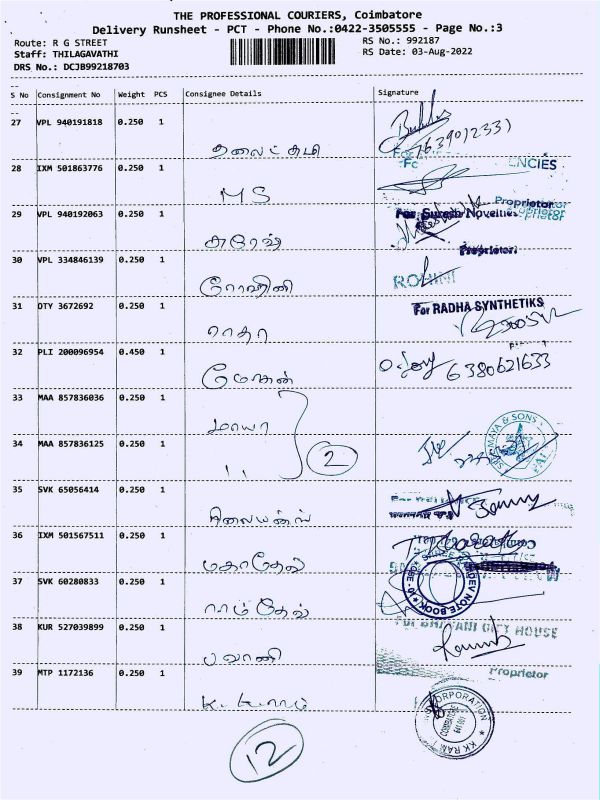 THE PROFESSIONAL COURIERS, Coimbatore
Delivery Runsheet - PCT - Phone No.:0422-3505555 - Page No.:3
Route: R G STREET
RS No.: 992187
Staff: THILAGAVATHI
RS Date: 03-Aug-2022
DRS No.: DCJB99218703
S No Consignment No Weight PCS Consignee Details Signature
27 VPL 940191818 0.250 1
28 IXM 501863776 0.250 1
M S
NCIES
Proprietor
29 VPL 940192063 0.250 1
சுரேஷ்
For Suresh Novelties
Proprietor
30 VPL 334846139 0.250 1
ரோஹினி
ROHINI
31 DTY 3672692 0.250 1
ராதா
For RADHA SYNTHETIKS
32 PLI 200096954 0.450 1
மோகன்
6380621633
33 MAA 857836036 0.250 1
மாயா
MAYA & SONS
34 MAA 857836125 0.250 1
,,
2
35 SVK 65056414 0.250 1
ரிலையன்ஸ்
36 IXM 501567511 0.250 1
மகாதேவ்
37 SVK 60280833 0.250 1
ராம்தேவ்
DEV NOTE BOOK
38 KUR 527039899 0.250 1
பவானி
For BHAVANI GIFT HOUSE
Proprietor
39 MTP 1172136 0.250 1
K. K. ராம்
CORPORATION
COIMBATORE
KK RAM
12